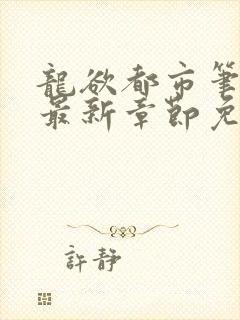 龍欲都市筆
最新章節免
許靜